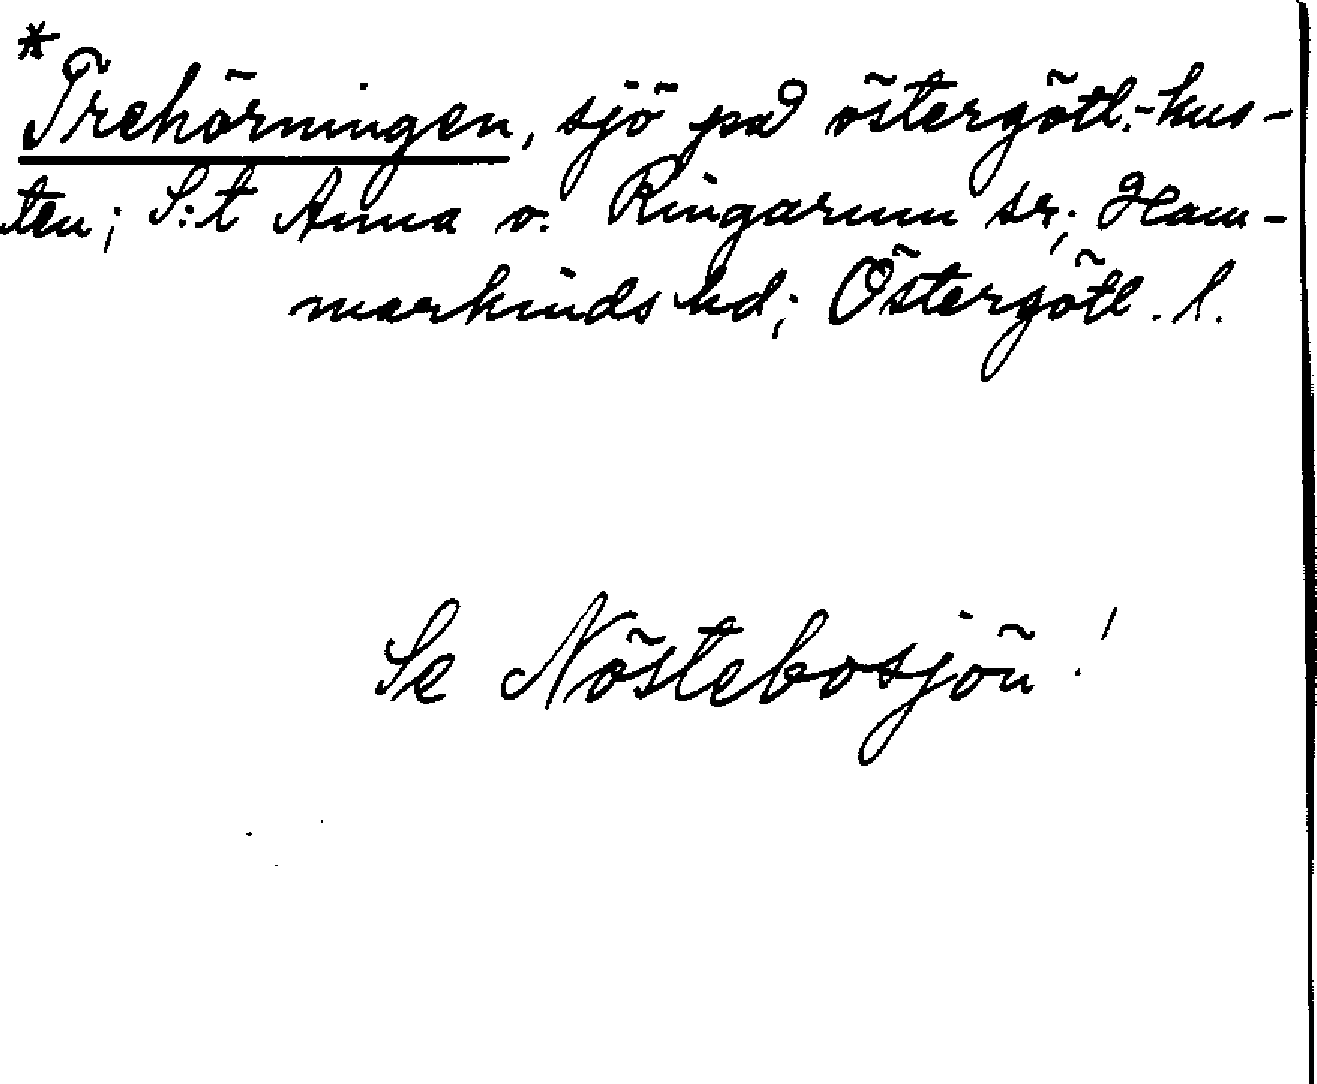 * Trehörningen, sjö på östergötl.-kus-
ten; S:t Anna o. Ringarum sr; Ham-
markinds hd; Östergötl. l.
Se Nöstebosjön!